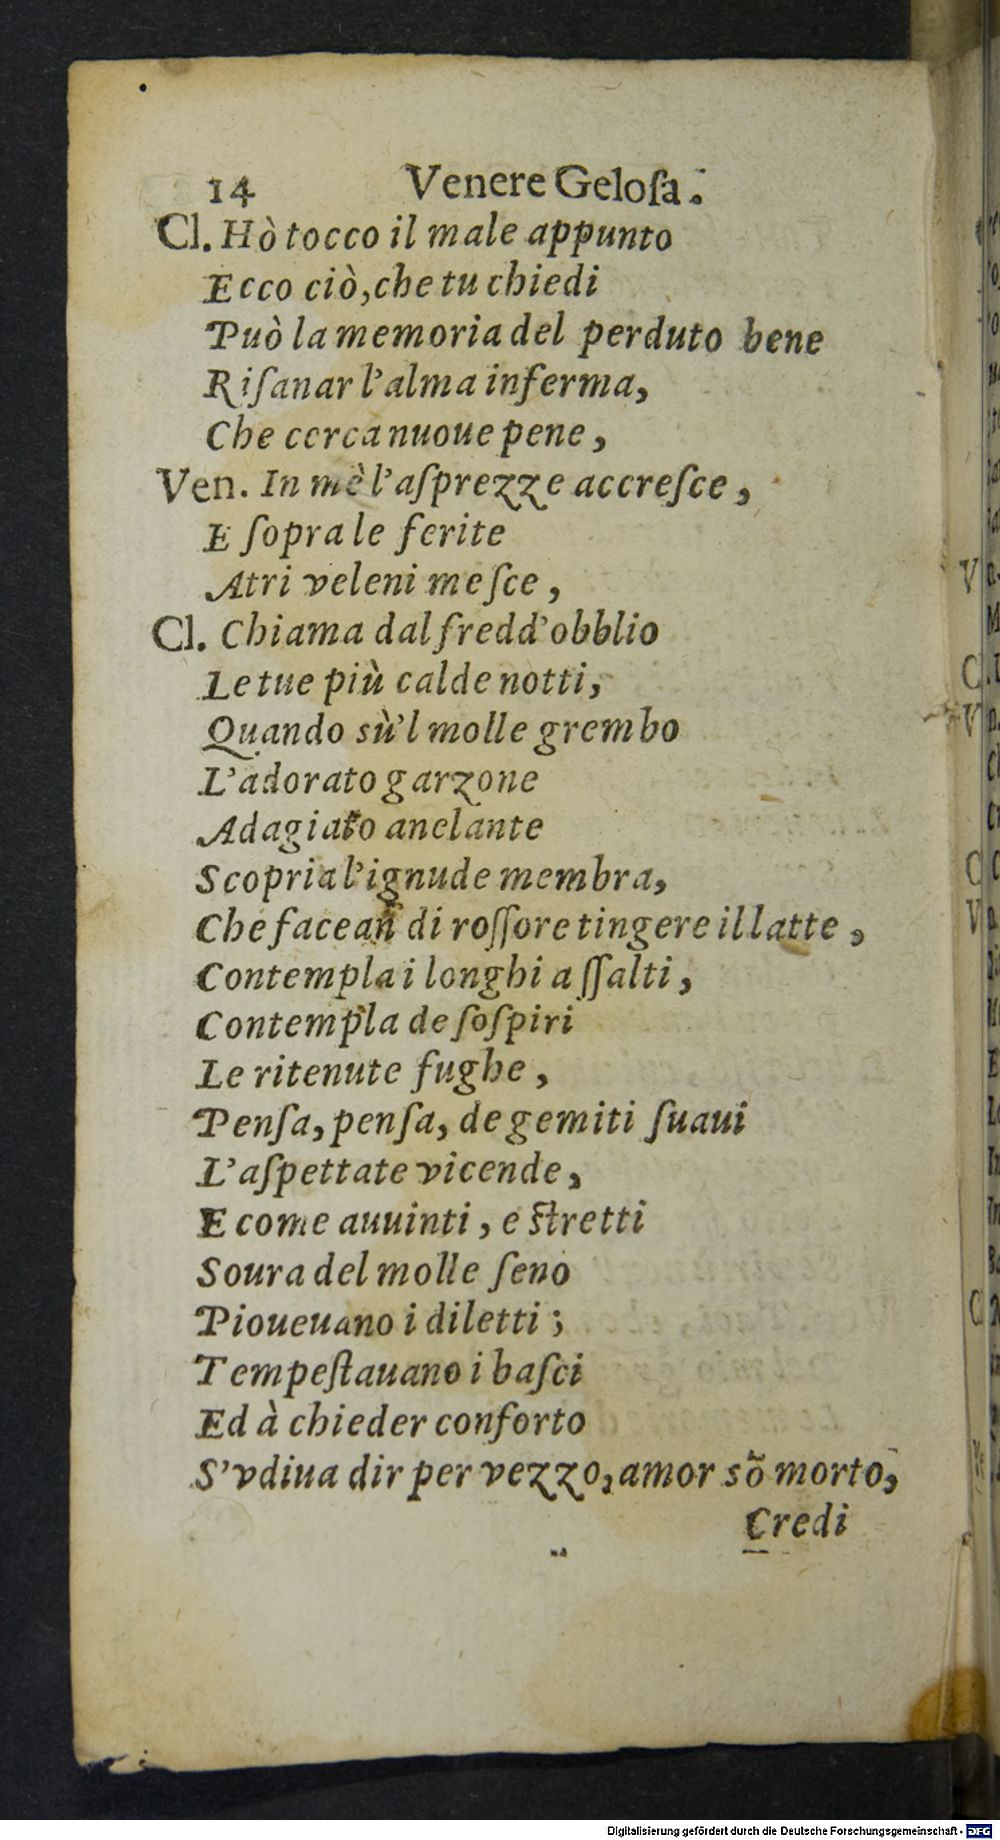 14 Venere Geloſa.
Cl. Hò tocco il male appunto
Ecco ciò, che tu chiedi
Può la memoria del perduto bene
Riſanar l'alma inferma,
Che cerca nuoue pene,
Ven. In mè l'aſprezze accreſce,
E ſopra le ferite
Atri veleni meſce,
Cl. Chiama dal fredd'obblio
Le tue più calde notti,
Quando sù'l molle grembo
L'adorato garzone
Adagiato anelante
Scopria l'ignude membra,
Che facean di roſſore tingere il latte,
Contempla i longhi aſſalti,
Contempla de ſoſpiri
Le ritenute fughe,
Penſa, penſa, de gemiti ſuaui
L'aſpettate vicende,
E come auuinti, e ſtretti
Soura del molle ſeno
Pioueuano i diletti;
Tempeſtauano i baſci
Ed à chieder conforto
S'vdiua dir per vezzo, amor sõ morto,
Credi
Digitalisierung gefördert durch die Deutsche Forschungsgemeinschaft - DFG